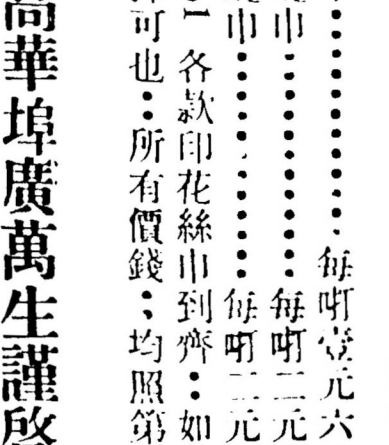 每㕑壹元六
巾 每㕑二元
巾 每㕑二元
各款印花絲巾到齊：如
可也：所有價錢：均照第
高華埠廣萬生謹啓